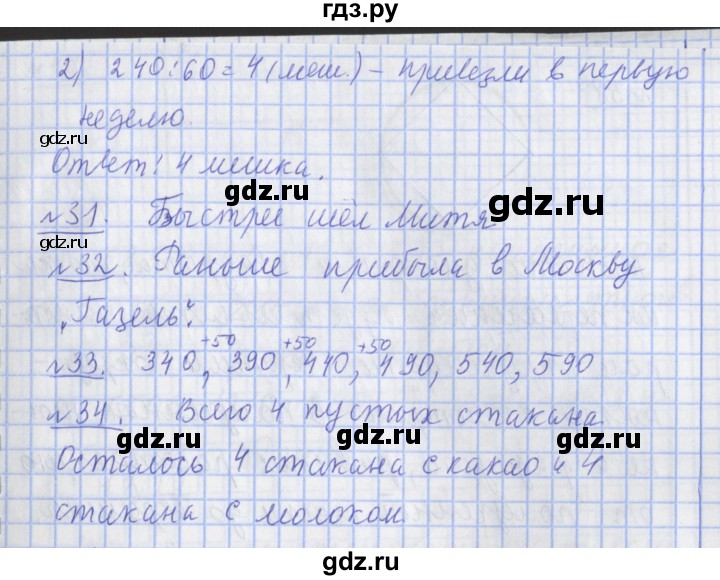 гдз.ру
2) 240:60=4(меш.) – привезли в первую
неделю.
gdz.ru
gdz.ru
Ответ: 4 мешка.
gdz.ru
gdz.ru
№31. Быстрее шёл Митя
№32. Раньше прибыла в Москву
„Газель".
gdz.ru
gdz.ru
+50 +50 +50
№33. 340, 390, 440, 490, 540, 590
№34. Всего 4 пустых стакана
gdz.ru
gdz.ru
Осталось 4 стакана с какао и 4
стакана с молоком
gdz.ru
gdz.ru
gdz.ru